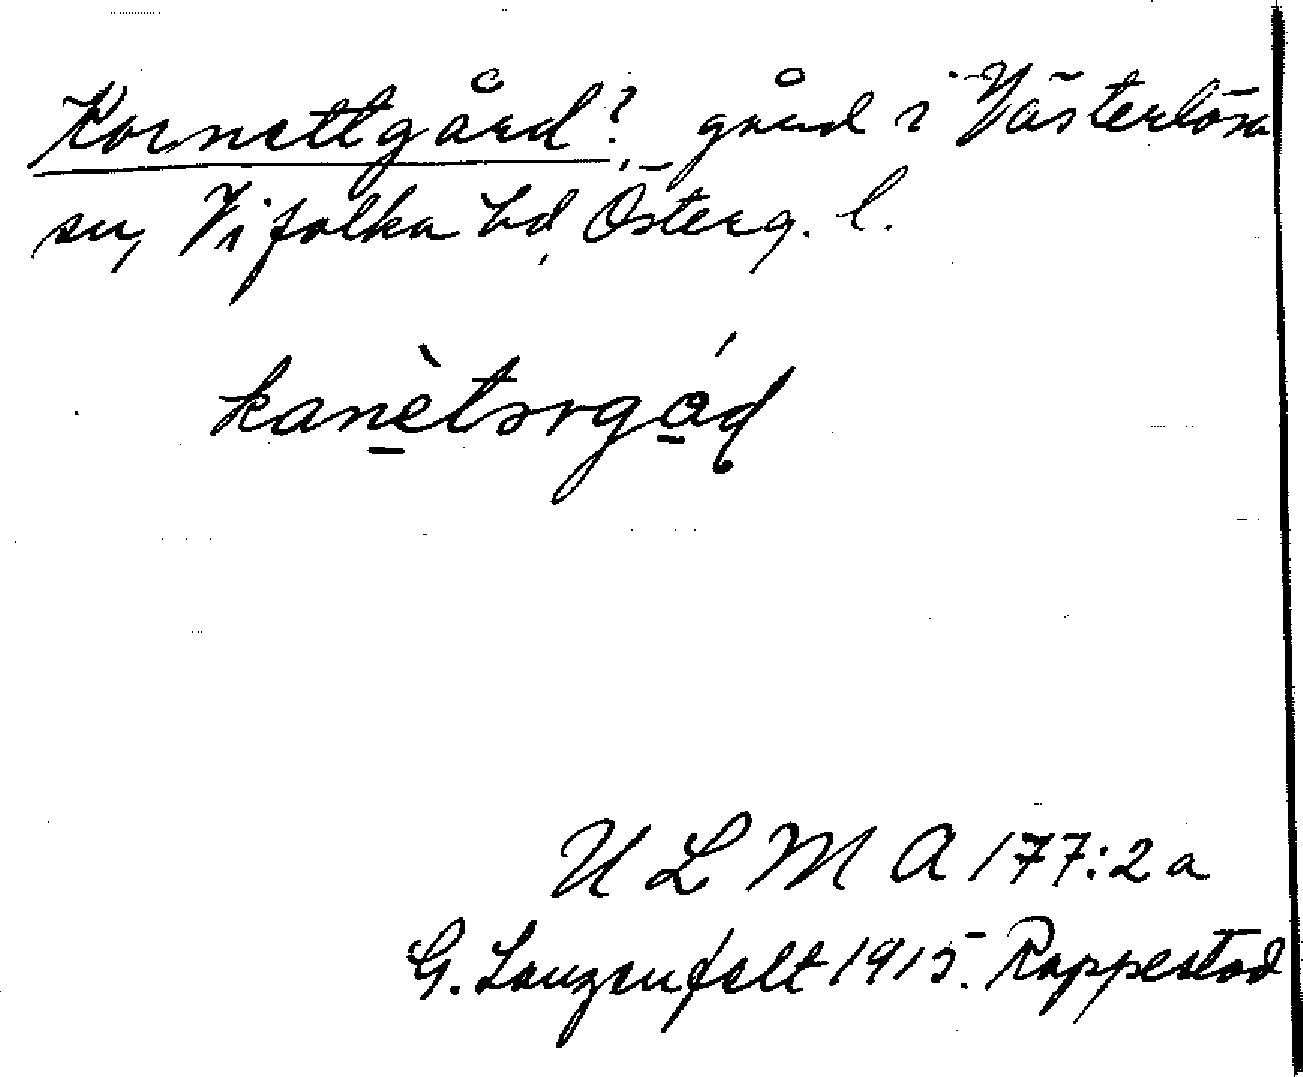 Kornettgård?, gård i Västerlösa
sn, Vifolka hd, Österg. l.
kanètsrgɑ́d
ULMA 177:2a
G. Lauzenfelt 1915. Rappestad